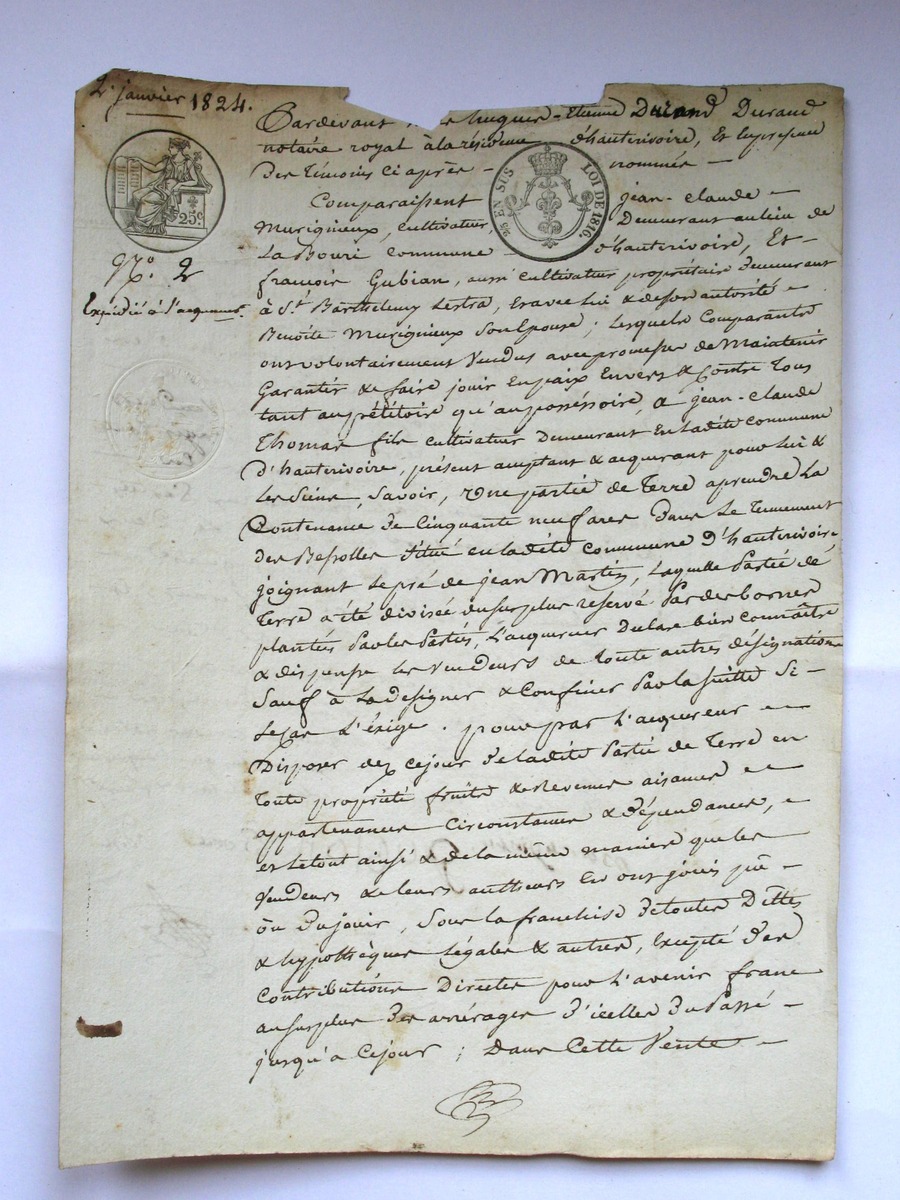 2. janvier 1824.
Pardevant Hugues-Etienne Durand Durand
notaire royal à la résidence d'hauterivoire, Et En presence
Des Témoins Ci après - nommés -
Comparaissent jean-claude -
Murigneux, cultivateur Demeurant au lieu de
La Bouri commune d'hauterivoire, Et
francois Gubian, aussi cultivateur propriétaire demeurant
à St. Barthelemy Lestra, Et avec lui & de son autorité -
Benoite Murigneux Son Epouse ; Lesquels Comparants
ont volontairement Vendus avec promesse de Maintenir
Garantir & faire jouir En paix Envers & Contre Tous
tant au pétitoire qu'au possessoire, a jean-claude
Thomas fils cultivateur Demeurant En la dite commune
D'hauterivoire, présent acceptant & acquerant pour lui &
Les Siens, Savoir, Une partie de Terre aprendre La
Contenance de Cinquante neuf ares Dans Le Tennement
des Bessolles Situé en la dite commune D'hauterivoire
joignant Le pré de jean Martin, Laquelle Partie de
Terre a été divisée du surplus reservé Par des bornes
plantés Par les Partis, L'acquereur Declare bien connaitre
& dispense les Vendeurs de toute autres désignations
Sauf à La Designer & Confiner Par la Suitte Si -
Le Cas L'éxige . pour par L'acquereur -
Disposer dez ce jour de la dite Partie de Terre en
Toute propriété fruits & Revenus aisances
appartenances Circonstances & Dépendances,
et le tout ainsi & de la même maniere que les
Vendeurs & leurs autheurs En ont jouis pû -
ou Du jouir, Sous la franchise de toutes Dettes
& hypothèques Légales & autres, Excepté des
Contributions Directes pour L'avenir franc
au surplus des arrérages D'icelles Du Passé -
jusqu'a Ce jour ; Dans Cette Vente -
25c.
2/5 EN SUS LOI DE 1816
No. 2
Expédié à l'acquereur.